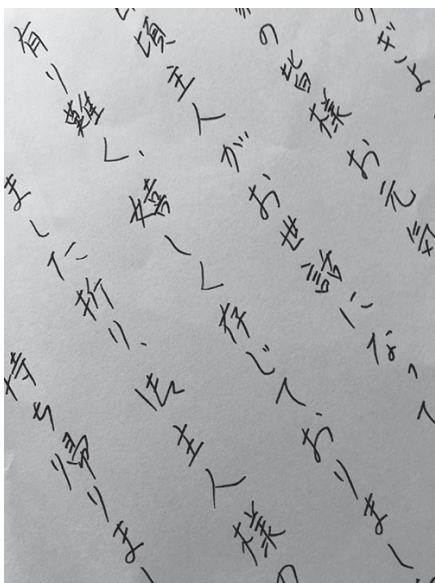 の皆様お元気
頃主人がお世話になって
有り難く、嬉しく存じておりまし
ました折り、主人様の
持ち帰りまし